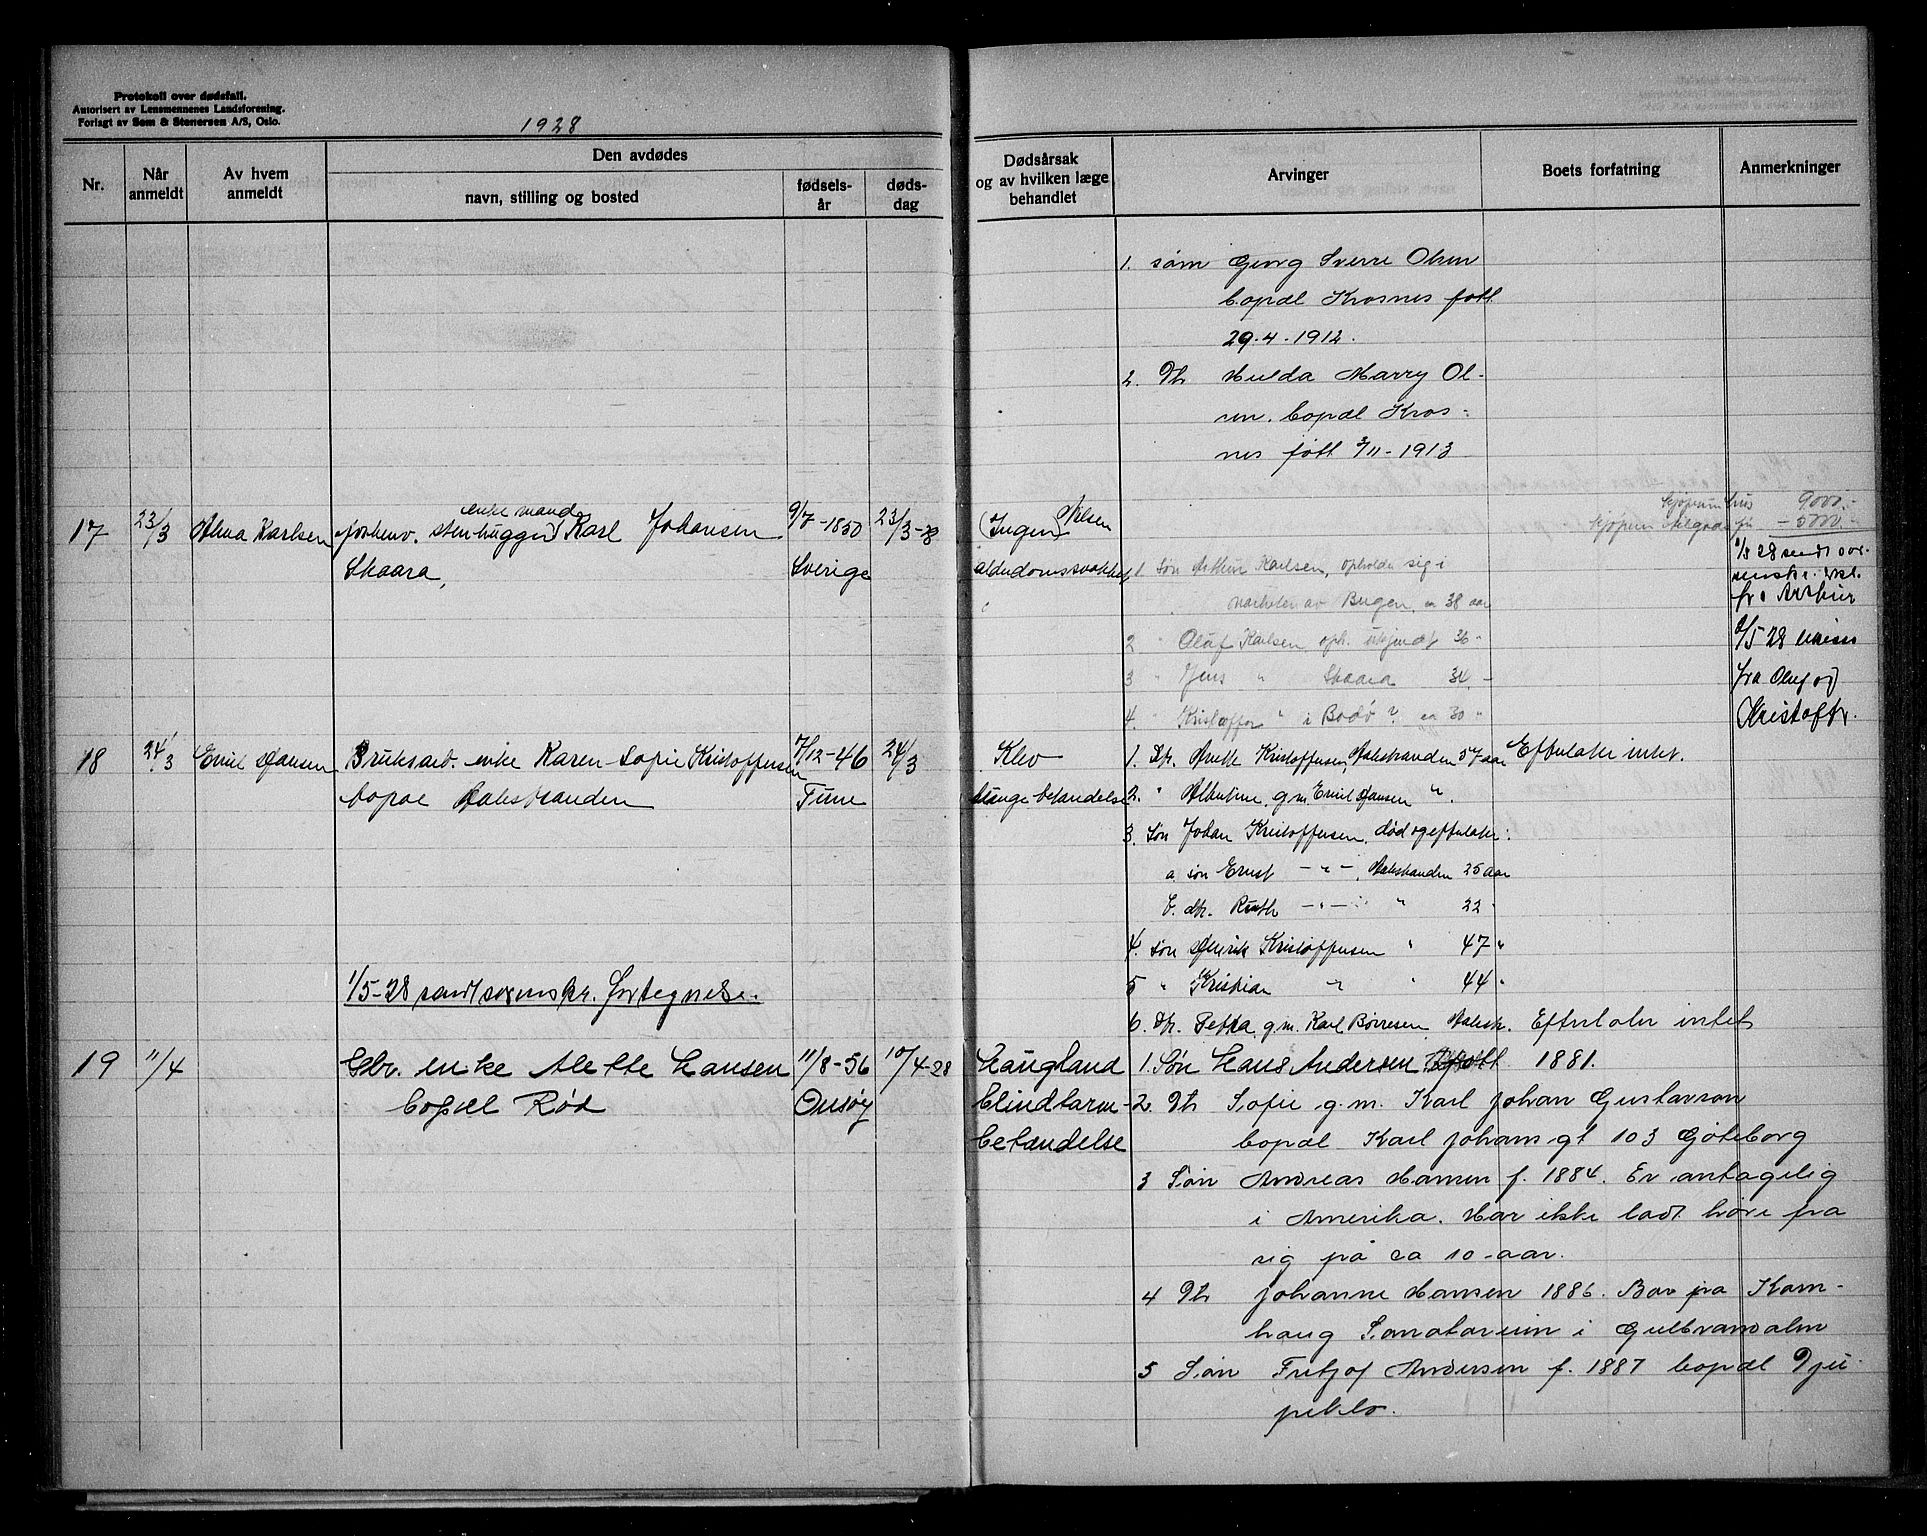 Protokoll over dødsfall.
Autorisert av Lensmennenes Landsforening.
Forlagt av Sem & Stenersen A/S, Oslo.
1928
Nr.
Når anmeldt
Av hvem anmeldt
Den avdødes
navn, stilling og bosted
fødsels-år
døds-dag
Dødsårsak
og av hvilken læge
behandlet
Arvinger
Boets forfatning
Anmerkninger
1. søn Georg Sverre Olsen
bopæl Krosnes født
29.4.1912.
2. Dtr Hulda Marry Ol-
sen. bopæl Kros-
nes født 3/11-1913
17 23/3 Alma Karlsen forhenv. stenhugger enkemand Karl Johansen 9/7-1850 23/3-28
Skaara, Sverige
(Ingen) Nilsen
alderdomssvakhet
9000.-
5000.-
1 Søn Arthur Karlsen, opholder sig i
av Bugen, ca 38 aar
2 " Olaf Karlsen, oph. ukjendt 36 "
3 " Jens " Skaara 34 "
4. " Kristoffer " i Bodø? ca 30 "
1/5 28 sendt sor-
enskr.
fra Arthur
2/5-28
fra Oluf og
Kristoffer.
18 24/3 Emil Hansen Bruksarb. enke Karen Sofie Kristoffersen 7/12-46 24/3
bopæl Aalestranden Tune
Klev
Mange behandelse
1. Dtr. Anette Kristoffersen, Aalestranden 57 aar Efterlater intet.
2. " Albertine, g.m. Emil Hansen ".
3. Søn Johan Kristoffersen, død og efterlater:
a. søn Ernst -"-, Aalestranden 25 aar
b. dtr. Ruth -"- " 22 "
4. søn Henrik Kristoffersen " 47 "
5 " Kristian " " 44 "
6. Dtr. Petra g.m. Karl Børresen Aalestr. Efterlater intet
1/5-28 sendt sorenskr. fortegnelse.
19 11/4 Gbr. enke Alette Hansen 11/8-56 10/4-28
bopæl Rød Onsøy
Haugland
blindtarm-
behandelse
1. Søn Hans Andersen født 1881.
2. Dtr Sofie g.m. Karl Johan Gustavson
bopæl Karl Johans gt 103 Göteborg
3 Søn Andreas Hansen f. 1884. Er antagelig
i Amerika. Har ikke ladt høre fra
sig på ca 10-aar.
4 Dtr Johanne Hansen 1886. Bor på Korn-
haug Sanatorium i Gulbransdalen
5 Søn Fritjof Andersen f. 1887 bopæl Dju-
peklo.